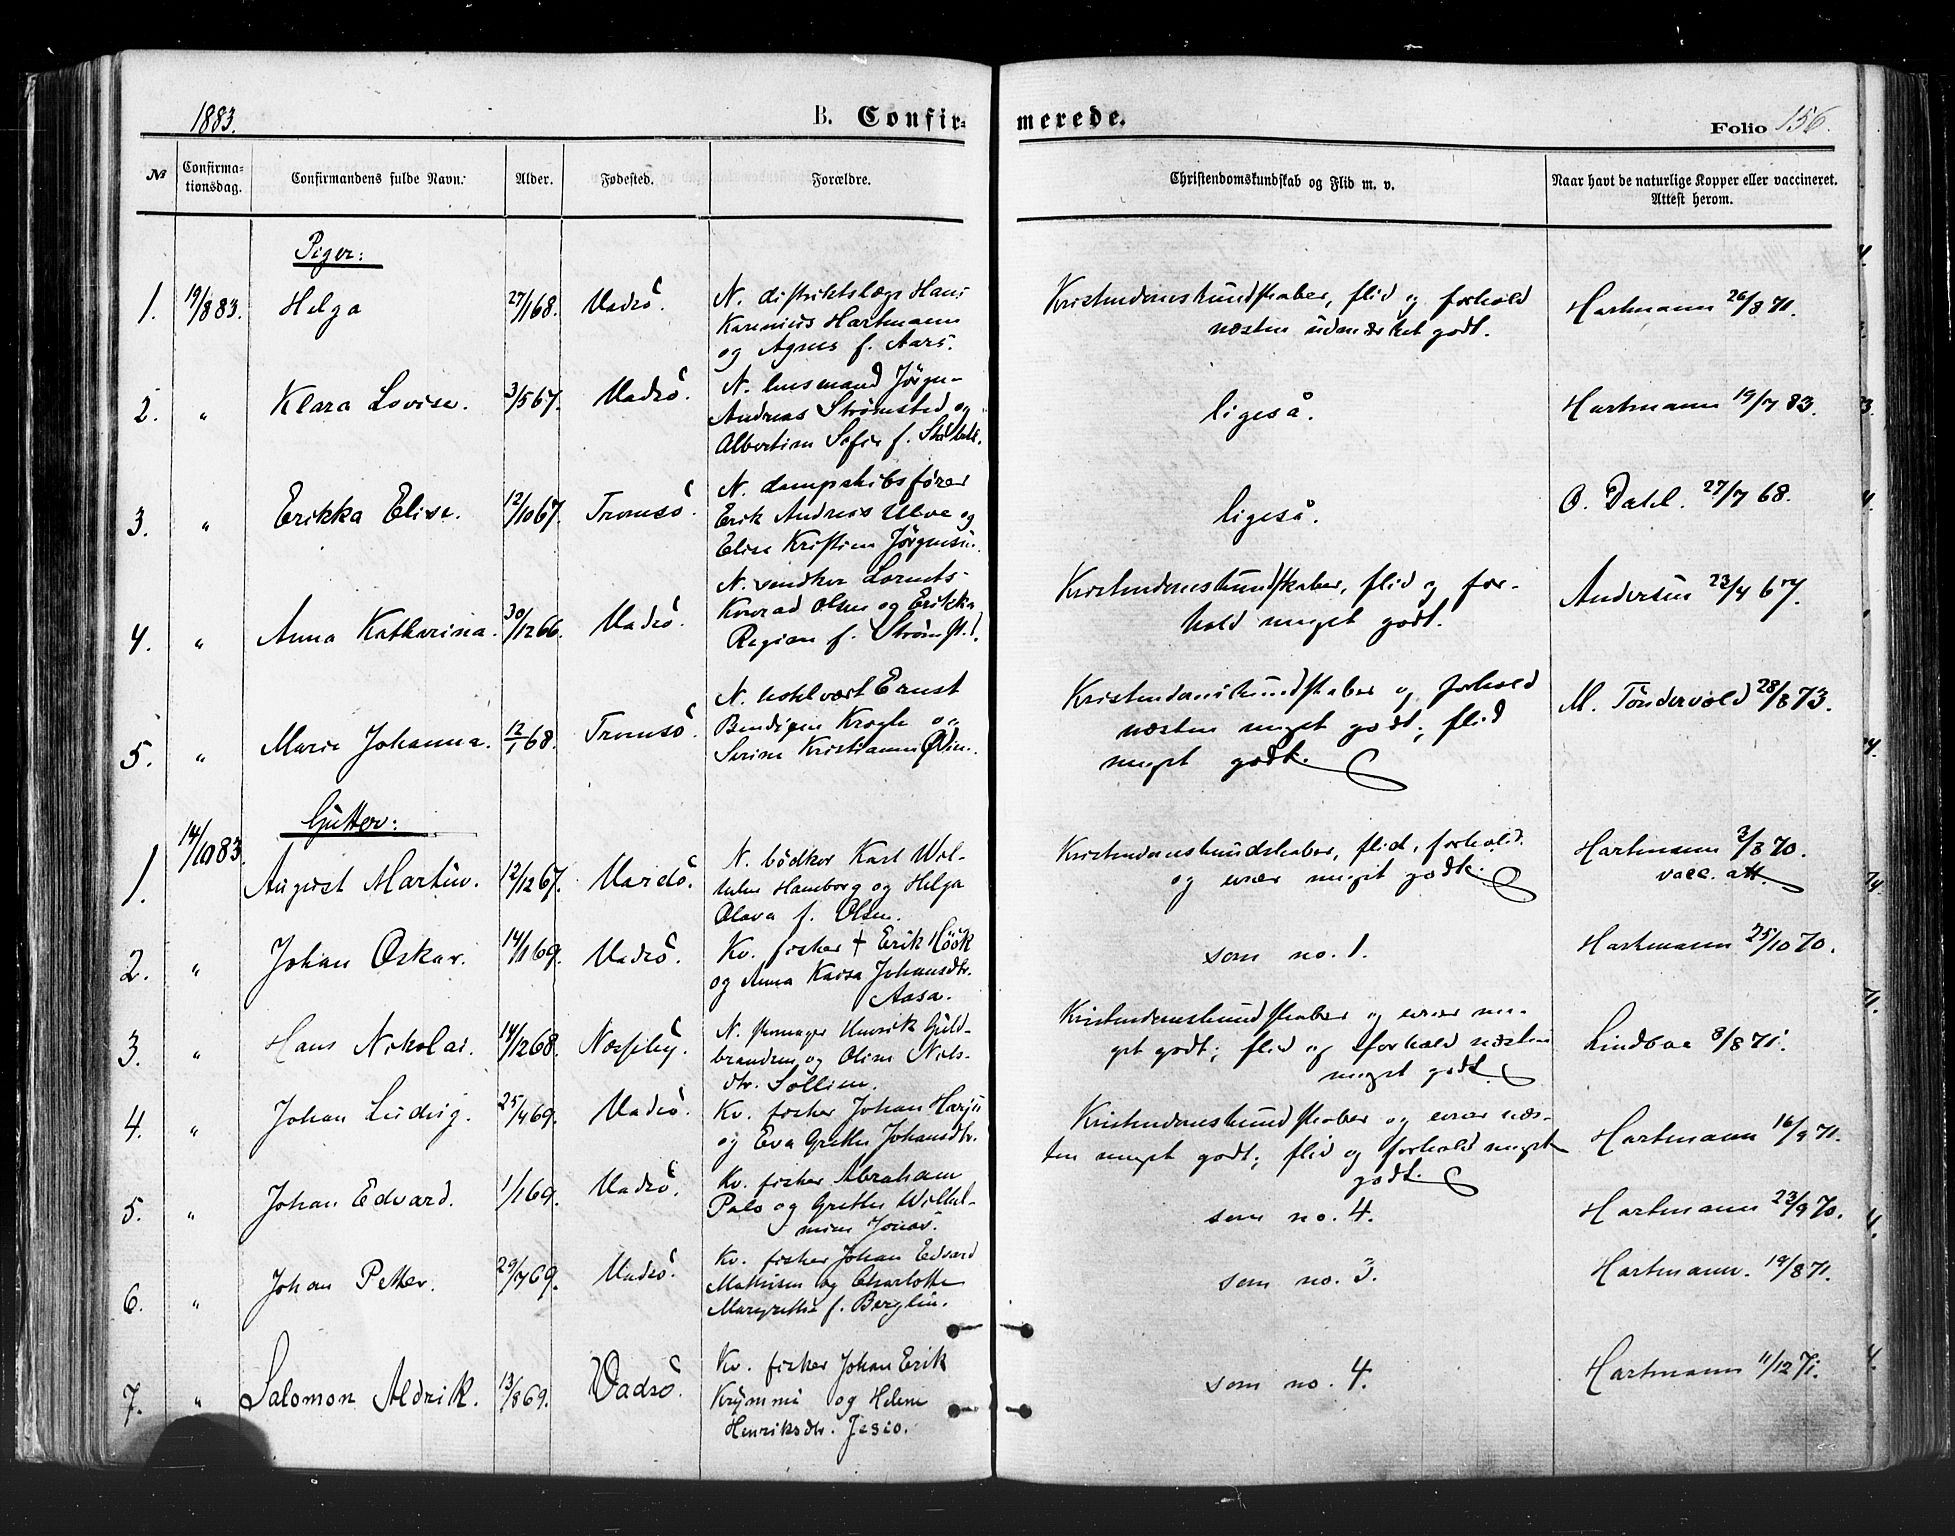 1883.
B. Confirmerede.
Folio 156.
№
Confirmationsdag.
Confirmandens fulde Navn.
Alder.
Fødested.
Forældre.
Christendomskundskab og Flid m. v.
Naar havt de naturlige Kopper eller vaccineret. Attest herom.
Piger:
1. 19/8 83. Helga 27/1 68. Vadsö. N. distriktslæge Hans
Hartmann
og Agnes f. Aars.
Kristendomskundskaber, flid og forhold
næsten udmærket godt.
Hartmann 26/8 71.
2. " Klara Lovise. 3/5 67. Vadsö. N. husmand Jörgen
Andreas Strömsted og
Albertine Sofie f.
ligeså.
Hartmann 19/7 83.
3. " Erikka Elise. 12/10 67. Tromsö. N. dampskibsförer
Erik Andreas Ulve og
Elise Kristine Jörgensen.
ligeså.
O. Dahl. 27/7 68.
4. " Anna Katharina. 30/12 66. Vadsö. N. snedker Lornts
Konrad Olsen og Erikka
Regine f. Strömst.d.
Kristendomskundskaber, flid og for-
hold meget godt.
Andersen 23/4 67.
5. " Marie Johanna. 12/1 68. Tromsö. N. hotelvært Ernst
Krogh og
Serine Kristianne
Kristendomskundskaber og forhold
næsten meget godt; flid
meget godt.
M. Töndervold 28/8 73.
Gutter:
1. 14/10 83. August Martin. 12/12 67. Vardö. N. bödker Karl Wil-
helm Hamborg og Helga
Olava f. Olsen.
Kristendomskundskaber, flid, forhold
og evner meget godt.
Hartmann 3/8 70.
vacc. att.
2. " Johan Oskar. 14/1 69. Vadsö. Kv. fisker + Erik Höök
og Anna Kaisa Johansdtr.
Aasa.
som no. 1.
Hartmann 25/10 70.
3. " Hans Nikolai. 14/12 68. Næsseby. N. Henrik Guld-
brandsen og Oline Nils-
dtr. Sollien.
Kristendomskundskaber og evner me-
get godt; flid og forhold næsten
meget godt.
Lindboe 8/8 71.
4. " Johan Ludvig. 25/4 69. Vadsö. Kv. fisker Johan Harju
og Eva Grethe Johansdtr.
Kristendomskundskaber og evner næs-
ten meget godt; flid og forhold meget
godt.
Hartmann 16/9 71.
5. " Johan Edvard. 1/1 69. Vadsö. Kv. fisker Abraham
Palo og Grethe Wilhel-
mine Jonas.
som no. 4.
Hartmann 23/9 70.
6. " Johan Petter. 29/7 69. Vadsö. Kv. fisker Johan Edvard
Mathisen og Charlotte
Margrethe f. Berglin.
som no. 3.
Hartmann. 19/8 71.
7. " Salomon Aldrik. 13/8 69. Vadsö. Kv. fisker Johan Erik
Krymmi og Helene
Henriksdtr. Jesio.
som no. 4.
Hartmann 11/12 71.